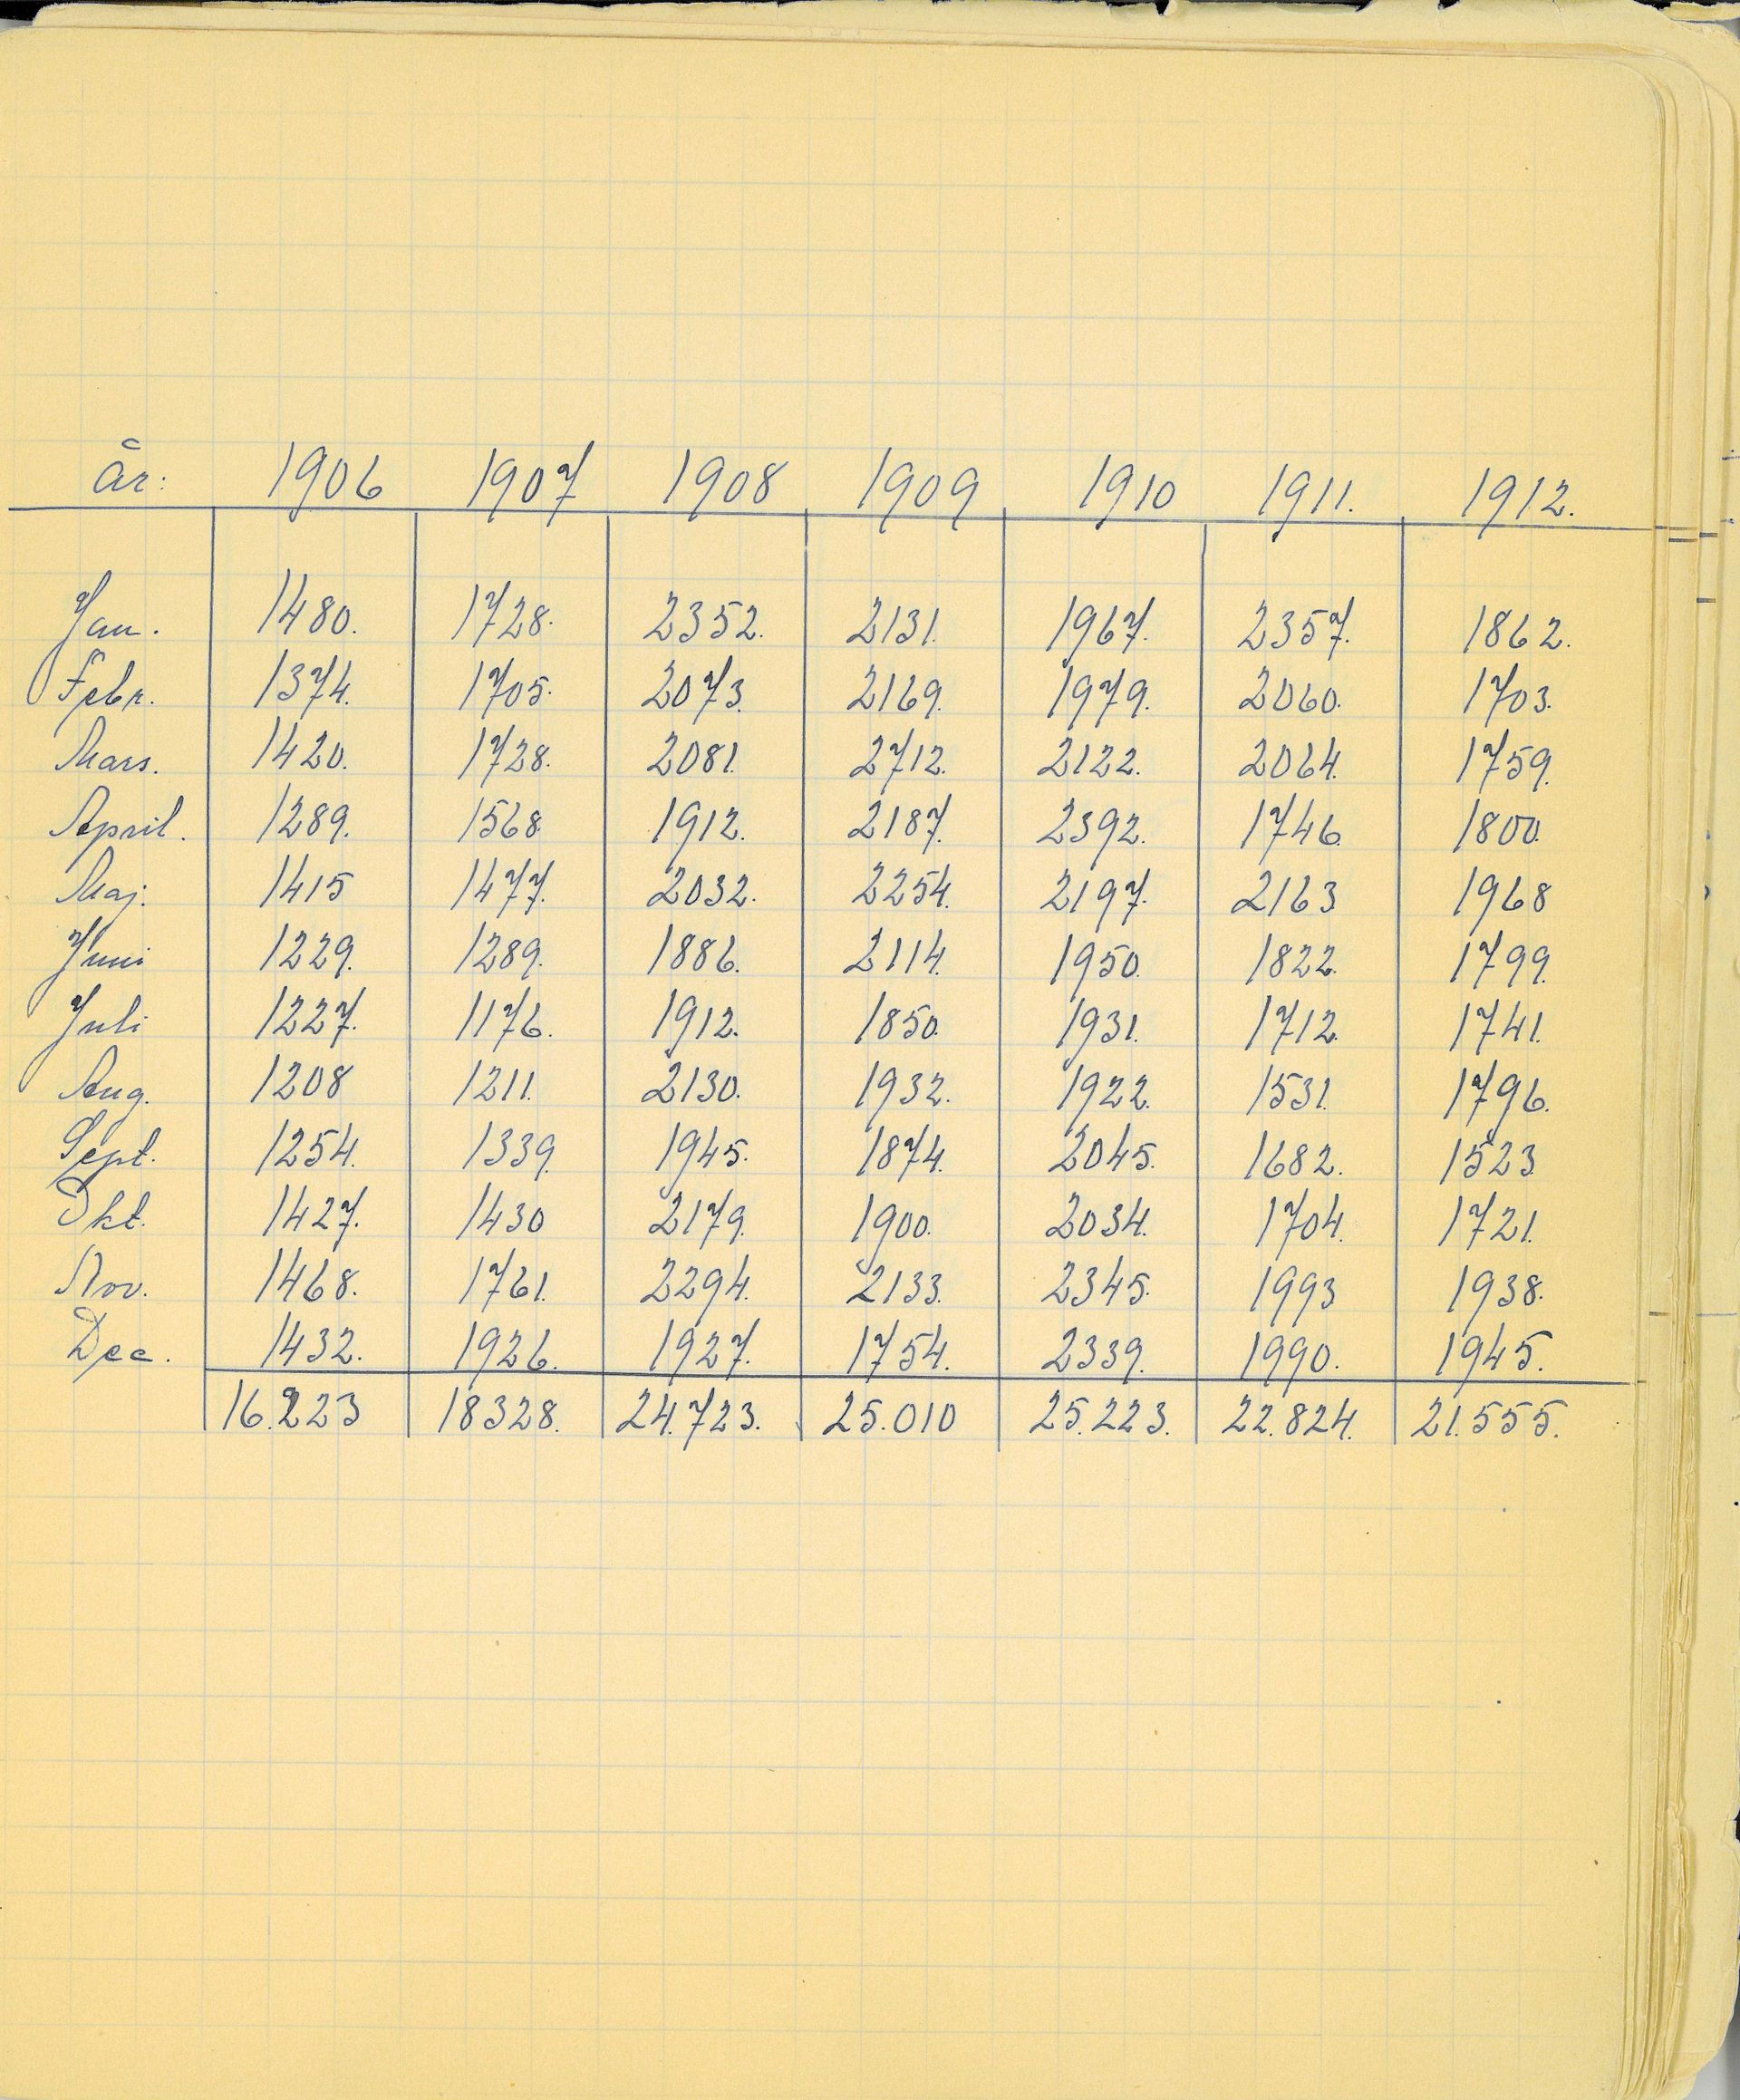 år: 1906 1907 1908 1909 1910 1911. 1912.
Jan. 1480. 1728. 2352. 2131. 1967. 2357. 1862.
Febr. 1374. 1705. 2073. 2169. 1979. 2060. 1703.
Mars. 1420. 1728. 2081. 2712. 2122. 2064. 1759.
April. 1289. 1568. 1912. 2187. 2392. 1746. 1800.
Maj. 1415 1477. 2032. 2254. 2197. 2163 1968
Juni 1229. 1289. 1886. 2114. 1950. 1822. 1799.
Juli 1227. 1176. 1912. 1850. 1931. 1712. 1741.
Aug. 1208 1211. 2130. 1932. 1922. 1531. 1796.
Sept. 1254. 1339. 1945. 1874. 2045. 1682. 1523.
Okt. 1427. 1430 2179. 1900. 2034. 1704. 1721.
Nov. 1468. 1761. 2294. 2133. 2345. 1993 1938.
Dec. 1432. 1926. 1927. 1754. 2339. 1990. 1945.
16.223 18328. 24.723. 25.010 25.223. 22.824. 21.555.